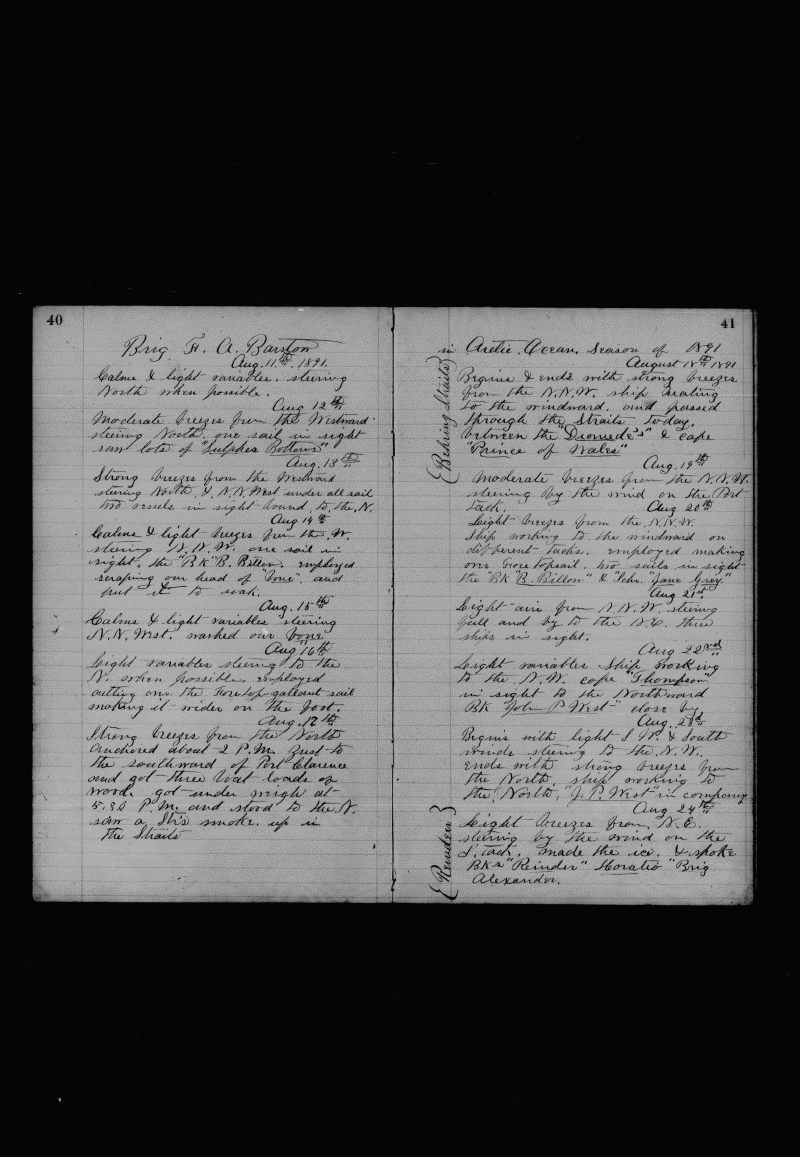 40
Brig F. A. Barstow
Aug. 11th, 1891.
Calms & light variables. steering
North when possible.
Aug 12th
Moderate breezes from the Westward
steering North. one sail in sight
saw lots of "Sulpher Bottoms"
Aug. 13th
Strong breezes from the Westward
steering North, & N.N.West under all sail
two vessels in sight bound to the N.
Aug 14th
Calms & light breezes from the W.
steering N.N.W. one sail in
sight, the "BK" B. Billow. employed
scraping our head of "bone". and
put it to soak.
Aug. 15th
Calms & light variables steering
N.N. West. washed our bone
Aug 16th
Light variables steering to the
N. when possible. employed
cutting over the Foretop-gallant sail
making it wider on the foot.
Aug. 17th
Strong breezes from the North
Anchored about 2 P.M. Just to
the southward of Port Clarence
and got three boat loads of
wood. got under weigh at
5.30 P.M. and stood to the N.
saw a Str's smoke up in
the Straits
41
in Arctic Ocean, Season of 1891
August 18th 1891
(Behring Straits)
Begins & ends with strong breezes
from the N.N.W. ship beating
to the windward. and passed
through the Straits today.
between the "Diomede's" & cape
"Prince of Wales"
Aug. 19th
Moderate breezes from the N.N.W.
steering by the wind on the Port
tack. Aug 20th
Light breezes from the N.N.W.
Ship working to the windward on
different tacks. employed making
over Foretopsail. two sails in sight
the "BK" B. Billow" & "Schr. "Jane Grey."
Aug 21st
Light airs from N.N.W. steering
full and by to the N.E. three
ships in sight.
Aug 22nd
Light variables Ship working
to the N.W. cape "Thompson"
in sight to the Northward
BK "John P West" close by
Aug. 23d
Begins with light S W. & South
winds steering to the N.W.
Ends with strong breezes from
the North, ship working to
the North, "J. P. West" in company
Aug 24th
(Reindeer)
Light breezes from N.E.
steering by the wind on the
S. tack. made the ice. & spoke
BKs "Reinder" Horatio "Brig
Alexander.